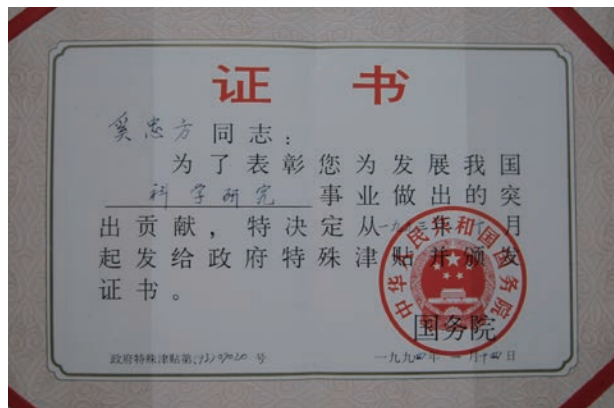 证 书
奚忠方同志：
为了表彰您为发展我国
科学研究事业做出的突
出贡献，特决定从一九九三年十月
起发给政府特殊津贴并颁发
证书。
中华人民共和国国务院
国务院
政府特殊津贴第(93) 号
一九九四年一月十四日